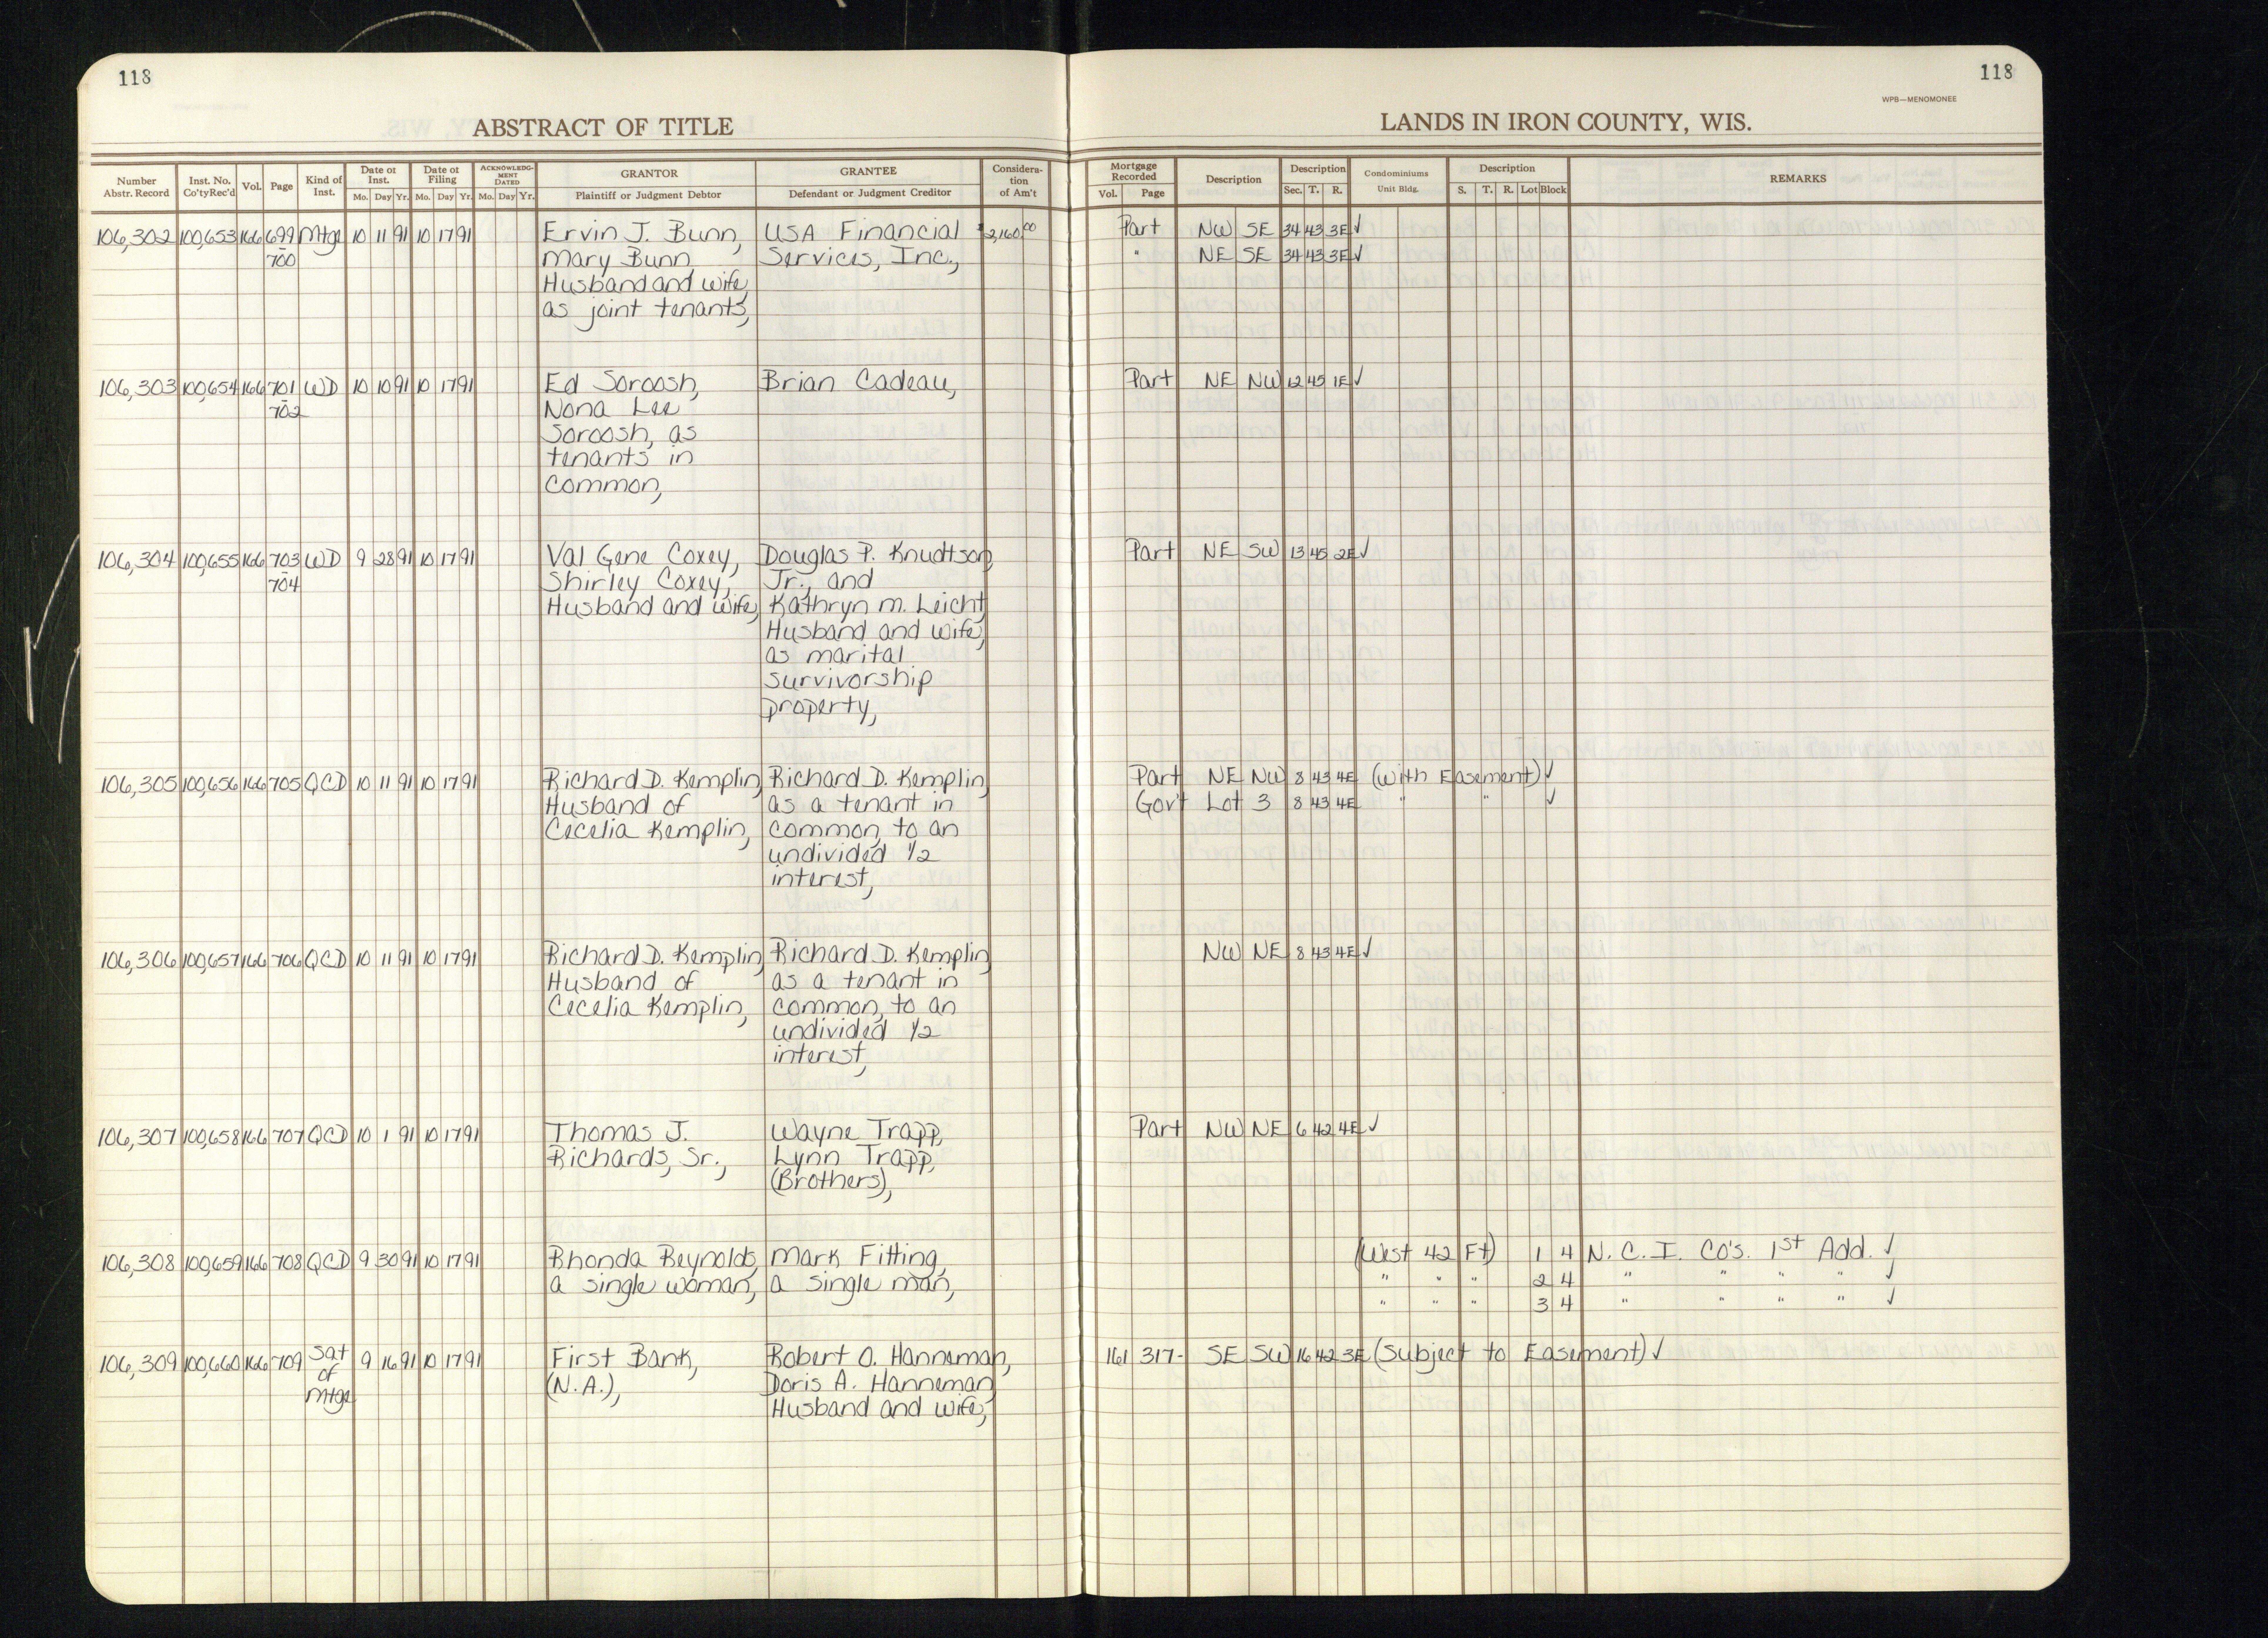 118
118
WPB—MENOMONEE
ABSTRACT OF TITLE
LANDS IN IRON COUNTY, WIS.
Number Abstr. Record | Inst. No. Co'tyRec'd | Vol. | Page | Kind of Inst. | Date of Inst. Mo. Day Yr. | Date of Filing Mo. Day Yr. | ACKNOWLEDGMENT DATED Mo. Day Yr. | GRANTOR Plaintiff or Judgment Debtor | GRANTEE Defendant or Judgment Creditor | Consideration of Am't | Mortgage Recorded Vol. Page | Description | Description Sec. T. R. | Condominiums Unit Bldg. | Description S. T. R. Lot Block | REMARKS
106,302 100,653 166 699 Mtge 10 11 91 10 17 91 Ervin J. Bunn, USA Financial $2,160.00 Part NW SE 34 43 3E ✓
- 700 Mary Bunn Services, Inc., " NE SE 34 43 3E ✓
Husband and wife,
as joint tenants,
106,303 100,654 166 701 WD 10 10 91 10 17 91 Ed Soroosh, Brian Cadeau, Part NE NW 12 45 1E ✓
- 702 Nona Lee
Soroosh, as
tenants in
common,
106,304 100,655 166 703 WD 9 28 91 10 17 91 Val Gene Coxey, Douglas P. Knudtson, Part NE SW 13 45 2E ✓
- 704 Shirley Coxey, Jr., and
Husband and wife, Kathryn M. Leicht,
Husband and wife,
as marital
survivorship
property,
106,305 100,656 166 705 QCD 10 11 91 10 17 91 Richard D. Kemplin, Richard D. Kemplin, Part NE NW 8 43 4E (with Easement) ✓
Husband of as a tenant in Gov't Lot 3 8 43 4E " " ✓
Cecelia Kemplin, common, to an
undivided 1/2
interest,
106,306 100,657 166 706 QCD 10 11 91 10 17 91 Richard D. Kemplin, Richard D. Kemplin, NW NE 8 43 4E ✓
Husband of as a tenant in
Cecelia Kemplin, common, to an
undivided 1/2
interest,
106,307 100,658 166 707 QCD 10 1 91 10 17 91 Thomas J. Wayne Trapp, Part NW NE 6 42 4E ✓
Richards, Sr., Lynn Trapp,
(Brothers),
106,308 100,659 166 708 QCD 9 30 91 10 17 91 Rhonda Reynolds, Mark Fitting, (West 42 Ft) 1 4 N. C. I. Co's. 1st Add. ✓
a single woman, a single man, " " " 2 4 " " " " ✓
" " " 3 4 " " " " ✓
106,309 100,660 166 709 Sat 9 16 91 10 17 91 First Bank, Robert O. Hanneman, 161 317- SE SW 16 42 3E (Subject to Easement) ✓
of (N.A.), Doris A. Hanneman,
Mtge Husband and wife,